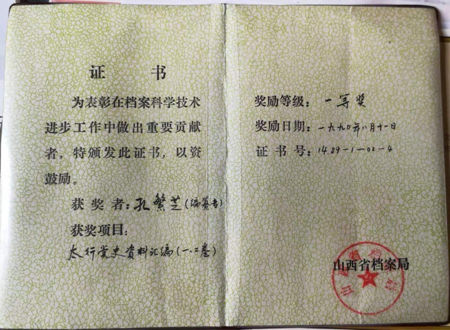 证书
为表彰在档案科学技术
进步工作中做出重要贡献
者，特颁发此证书，以资
鼓励。
获奖者：孔繁芝(编纂者)
获奖项目：
太行党史资料汇编(一.二卷)
奖励等级：一等奖
奖励日期：一九九〇年八月十一日
证书号：14.89-1-02-4
山西省档案局